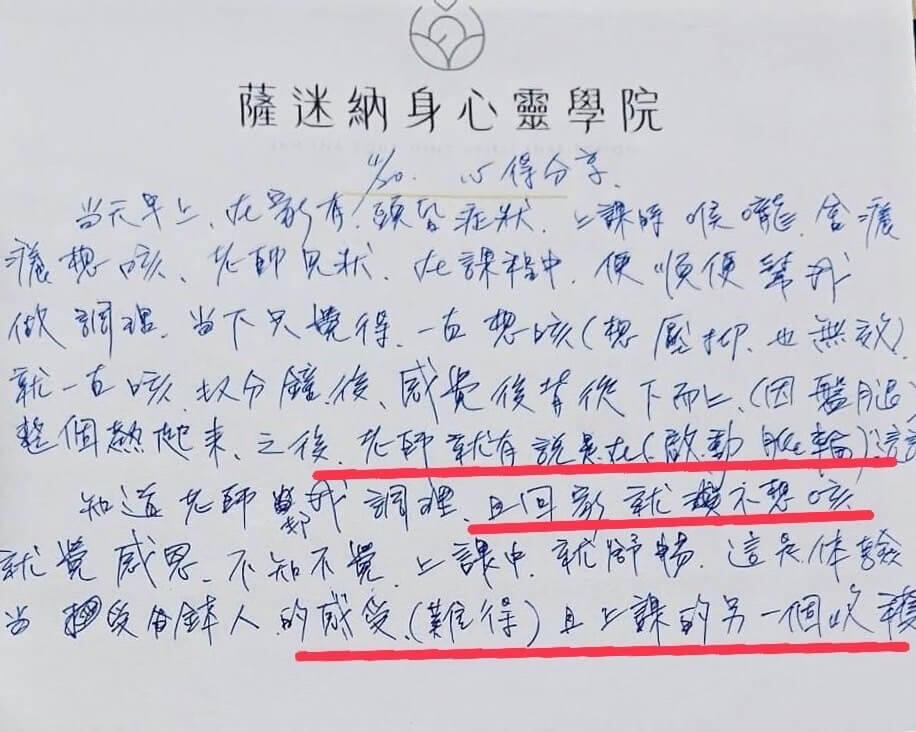 薩迷納身心靈學院
11/30. 心得分享.
當天早上, 在家有 頭昏症狀. 上課時 喉嚨. 會癢
癢想咳. 老師見狀. 在課程中. 便 順便幫我
做 調理. 當下只覺得. 一直想咳(想 壓抑. 也無效)
就一直咳. 幾分鐘後、感覺後背從下而上、(因盤腿)
整個熱起來. 之後. 老師就有說是在(啟動 脈輪)
知道老師 幫我 調理. 且回家就 不想咳
就覺感恩. 不知不覺. 上課中. 就舒暢. 這是体驗
當 受 缽人 的感受.(難得) 且上課的另一個收穫